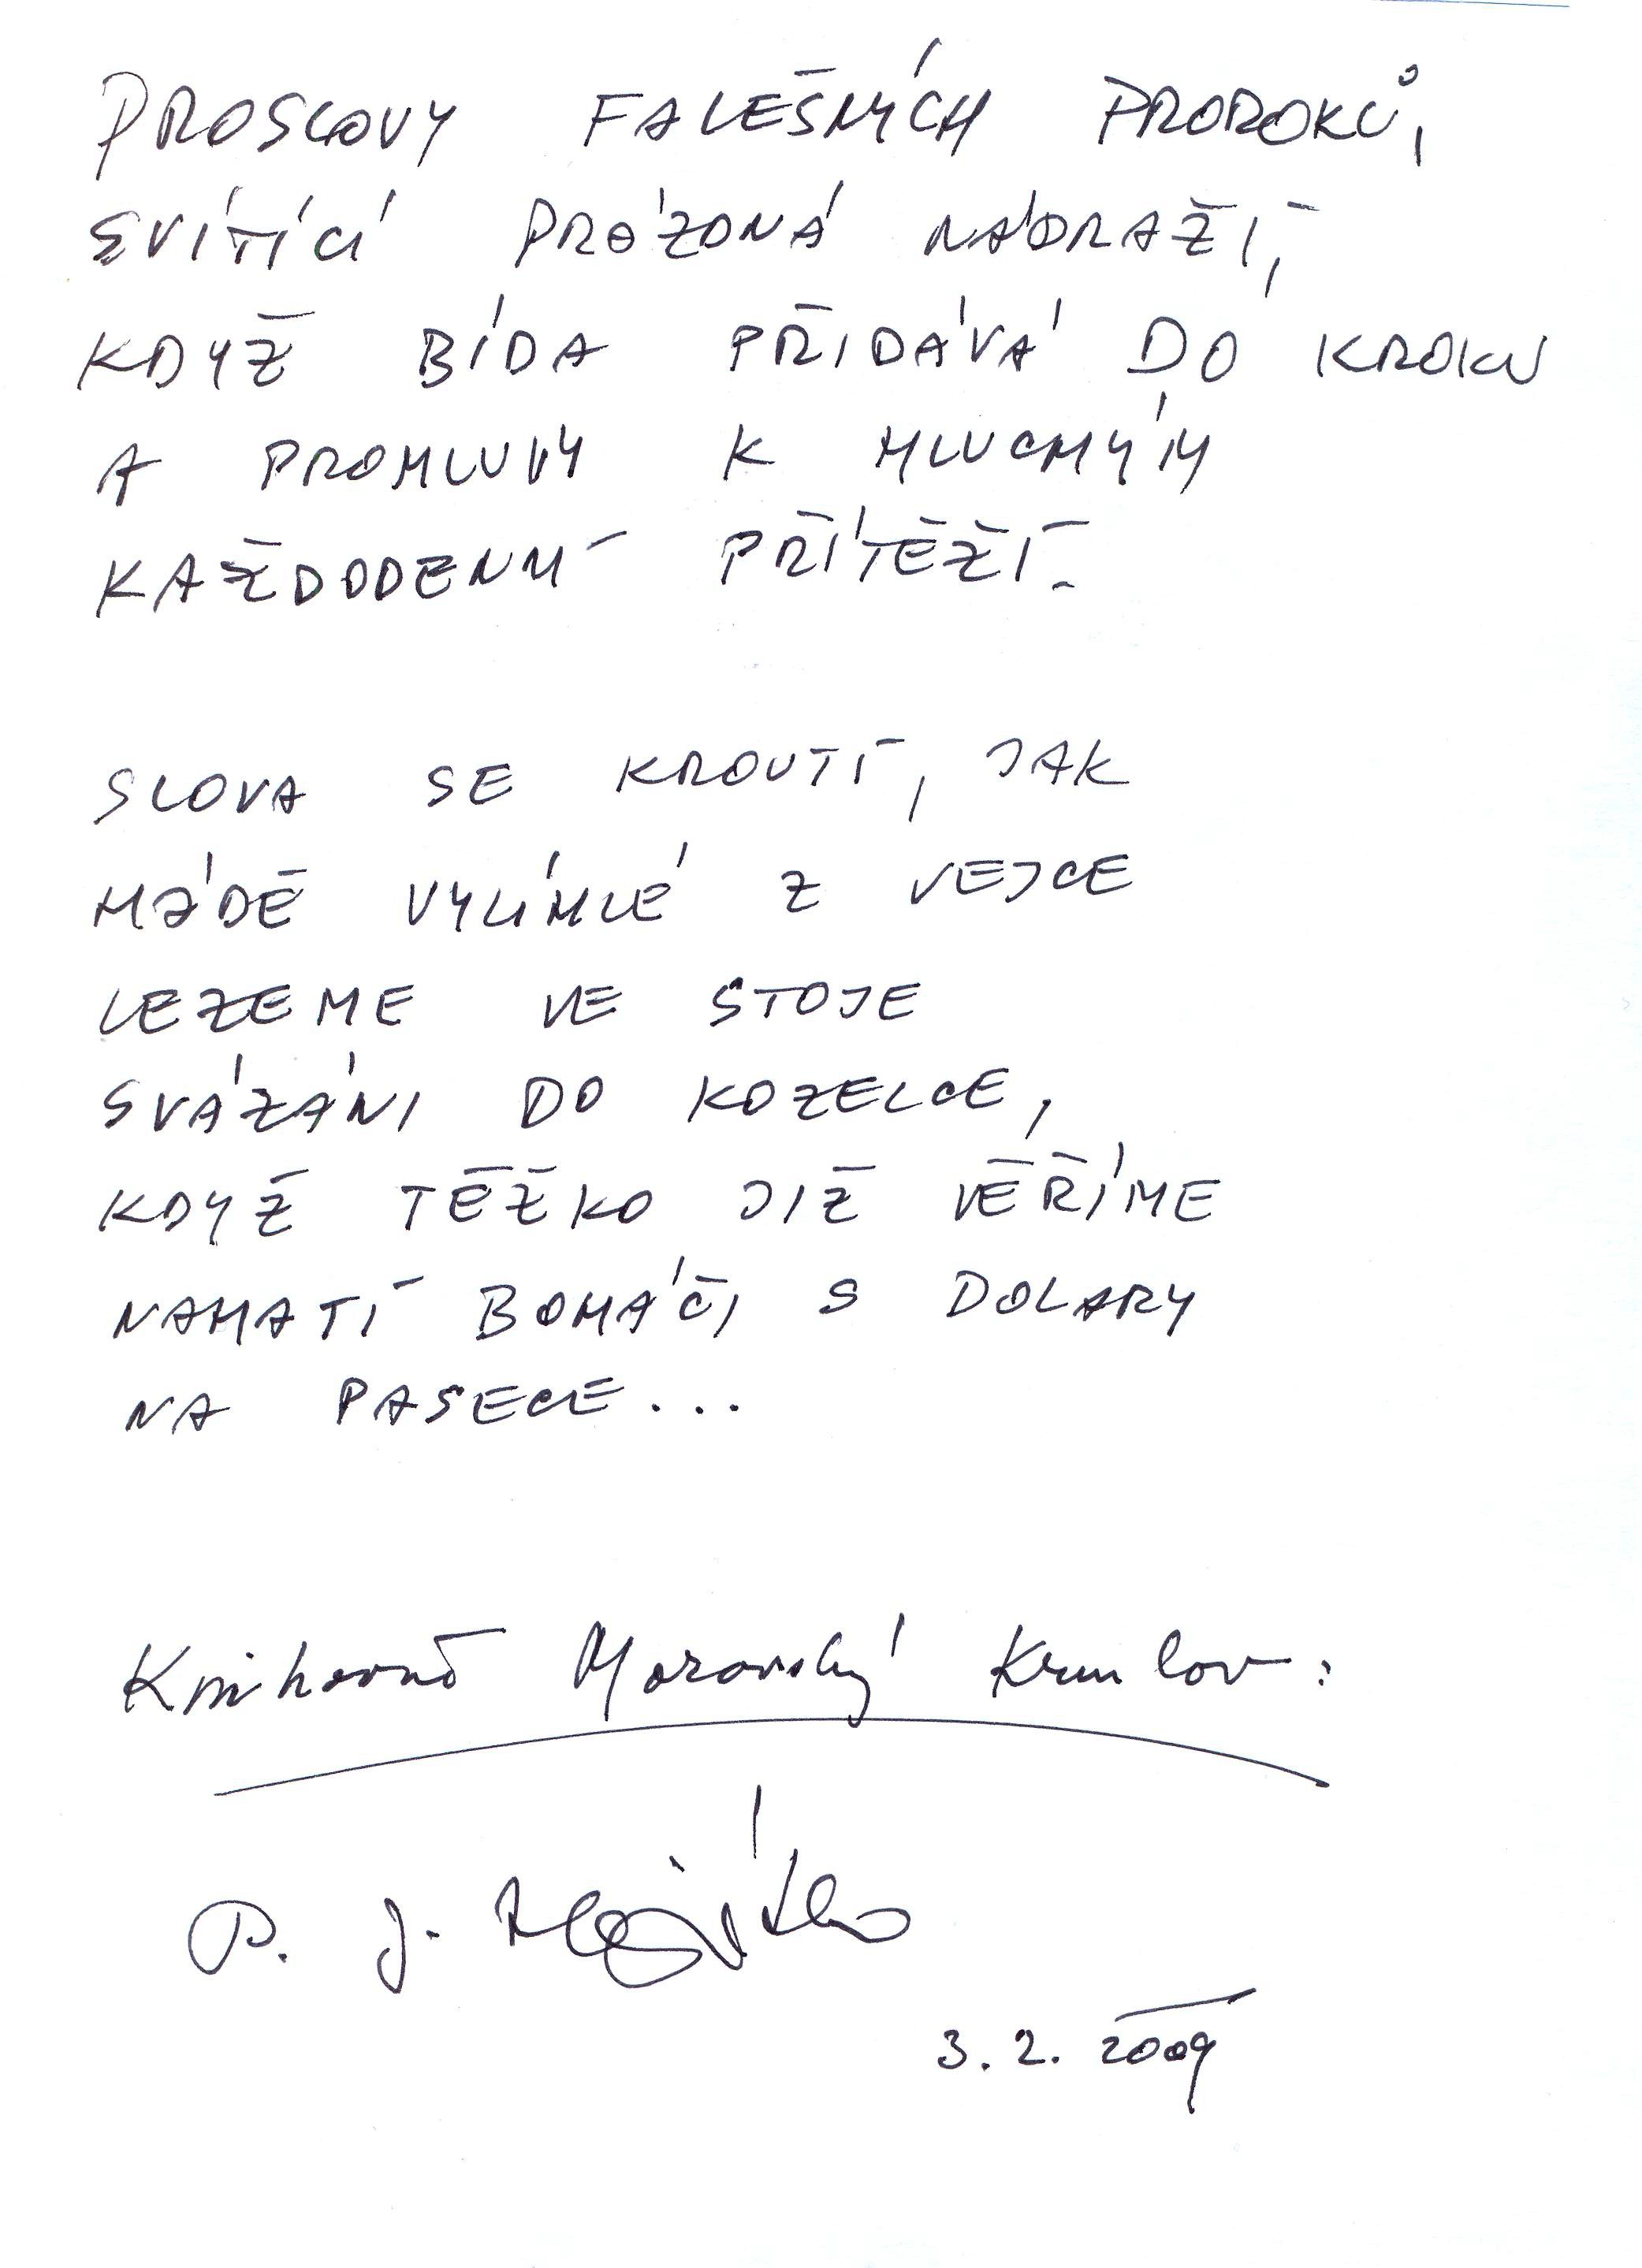 PROSLOVY FALEŠNÝCH PROROKŮ,
SVÍTÍCÍ PRÁZDNÁ NÁDRAŽÍ,
KDYŽ BÍDA PŘIDÁVÁ DO KROKU
A PROMLUVY K HLUCHÝM
KAŽDODENNÍ PŘÍTĚŽÍ.
SLOVA SE KROUTÍ, JAK
HÁDĚ VYLÍHLÉ Z VEJCE
LEZEME VE STOJE
SVÁZÁNI DO KOZELCE,
KDYŽ TĚŽKO JIŽ VĚŘÍME
NAHATÍ BOHÁČI S DOLARY
NA PASECE...
Knihovně Moravský Krumlov:
P. J.
3. 2. 2009